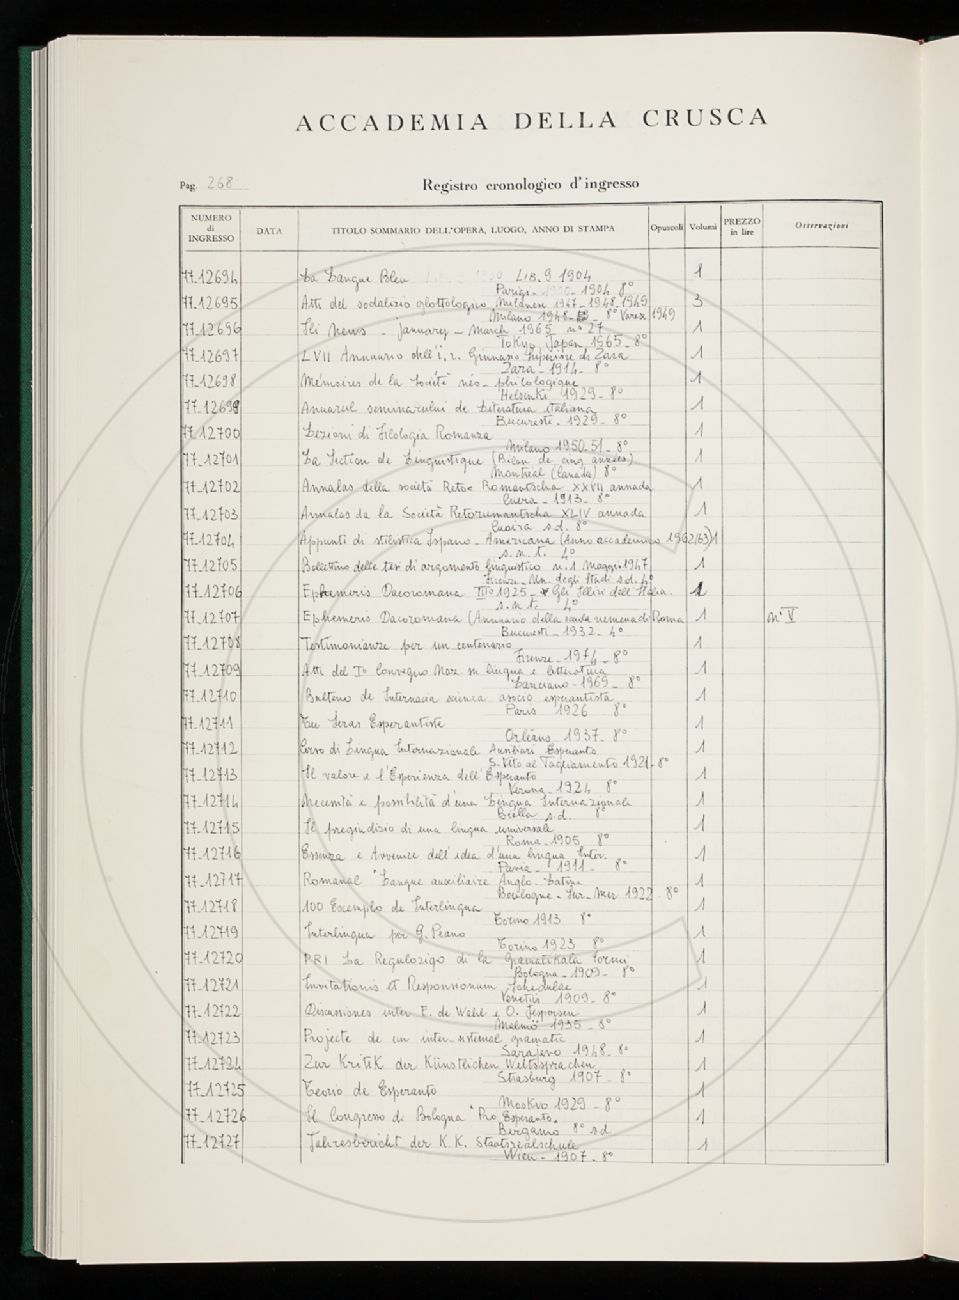 ACCADEMIA DELLA CRUSCA
Pag. 268
Registro cronologico d'ingresso
NUMERO di INGRESSO DATA TITOLO SOMMARIO DELL'OPERA, LUOGO, ANNO DI STAMPA Opuscoli Volumi PREZZO in lire Osservazioni
77-12694 La Langue Bleu LIB. 9 1904 1
Parigi - 1904 8°
77-12695 Atti del sodalizio glottologico Milanese 1947-1948, 1949 3
Milano 1948 - 8° Varese 1949
77-12696 News - January - March 1965 n° 27 1
Tokyo, Japan, 1965 - 8°
77-12697 LVII Annuario dell'i. r. Ginnasio Superiore di Zara 1
Zara - 1914 - 8°
77-12698 Mémoires de la Société néo-philologique 1
Helsinki 1929 - 8°
77-12699 Anuarul seminarului de Literatura italiana 1
Bucuresti - 1929 - 8°
77-12700 Lezioni di Filologia Romanza 1
Milano 1950-51 - 8°
77-12701 La Section de Linguistique (Bilan de cinq années) 1
Montréal (Canada) 8°
77-12702 Annalas della società Reto-Romantscha XXVII annada 1
Cuera - 1913 - 8°
77-12703 Annalas da la Società Retorumantscha XLIV annada 1
Cuoira s.d. 8°
77-12704 Appunti di stilistica Ispano-Americana (Anno accademico 1962/63) 1
s.n.t. 4°
77-12705 Bollettino delle tesi di argomento linguistico n. 1 Maggio 1947 1
Firenze - Un. degli Studi s.d. 4°
77-12706 Ephemeris Dacoromana III° 1925 - Gli Illiri dell'Italia. 1
s.n.t. 4°
77-12707 Ephemeris Dacoromana (Annuario della scuola rumena di Roma 1 N° V
Bucuresti - 1932 - 4°
77-12708 Testimonianze per un centenario 1
Firenze - 1974 - 8°
77-12709 Atti del I° Convegno Naz. su lingua e letteratura 1
Lanciano - 1969 - 8°
77-12710 Bulteno de Internacia scienca asocio esperantista 1
Paris 1926 8°
77-12711 Esperantiste 1
Orléans 1937 - 8°
77-12712 Corso di Lingua Internazionale Ausiliari Esperanto 1
S. Vito al Tagliamento 1921 - 8°
77-12713 Il valore e l'Esperienza dell'Esperanto 1
Verona - 1924 - 8°
77-12714 Necessità e possibilità d'una Lingua Internazionale 1
Biella s.d. 8°
77-12715 Il pregiudizio di una lingua universale 1
Roma - 1905 8°
77-12716 Essenza e Avvenire dell'idea d'una lingua Inter. 1
Pavia - 1911 - 8°
77-12717 Romanal "Langue auxiliaire Anglo-Latine 1
Boulogne-Sur-Mer 1922 - 8°
77-12718 100 Exemplo de Interlingua 1
Torino 1913 8°
77-12719 Interlingua por G. Peano 1
Torino 1923 8°
77-12720 PRI La Regulozigo di la Gramatikala Formi 1
Bologna - 1909 - 8°
77-12721 Invitationis et Responsionum Schedulae 1
Venetiis 1909 - 8°
77-12722 Discussiones inter E. de Wahl e O. Jespersen 1
Malmö 1935 - 8°
77-12723 Projecte de un inter-sistemal gramatic 1
Sarajevo 1948 - 8°
77-12724 Zur Kritik der Künstlichen Weltsprachen 1
Strasburg 1907 - 8°
77-12725 Teorio de Esperanto 1
Moskvo 1929 - 8°
77-12726 Il Congresso di Bologna "Pro Esperanto" 1
Bergamo 8° s.d.
77-12727 Jahresbericht der K.K. Staatsrealschule 1
Wien - 1907 - 8°